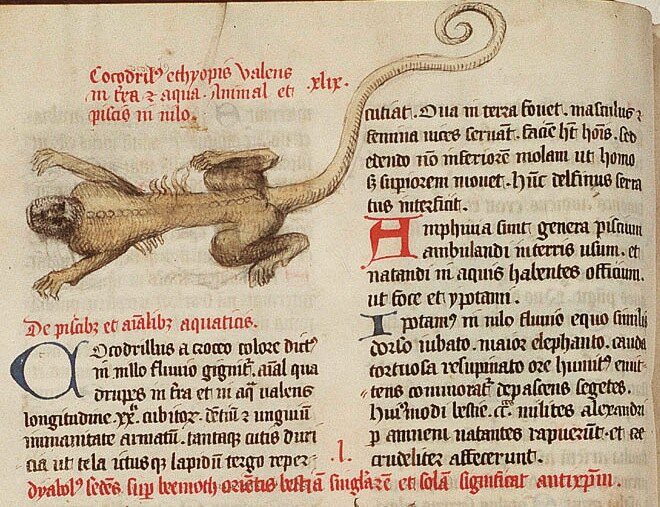 Cocodril9 ethyopis valens
in t͛ra ⁊ aqua. Animal et
piscis in nilo.
.xlix.
De piscibz et aĩalibz aquaticis.
COcodrillus a crocco colore dict9
in nillo fluuio gignit᷑. aĩal qua
drupes in t͛ra et in aq̃ valens
longitudine .xx. cubitor. dẽtiũ ⁊ unguiũ
inmanitate armatũ. tantaqz cutis duri
cia ut tela ictusqz lapidũ tergo reper
cutiat. Oua in terra fouet. masculus ⁊
femina uices seruat. faciẽ ht̃ hoĩs. sed
edendo nõ inferiorẽ molam ut homo
sz supiorem mouet. hũc delfinus serra
tus interficit.
Amphiuia sunt genera pisciũm
ambulandi in terris usum. et
natandi in aquis habentes officium.
ut foce et ypotami.
Ipotam9 in nilo fluuio equo similis
dorso iubato. maior elephanto. cauda
tortuosa resupinato ore hinnit9 emit
tens commorat᷑ depascens segetes.
Hui9modi bestie .cc. milites alexandri
p amnem natantes rapuerũt. et
crudeliter affecerunt.
.l.
dyabol9 sedẽs sup beemoth orientis bestiã singłarẽ et solã significat antixp̃m.